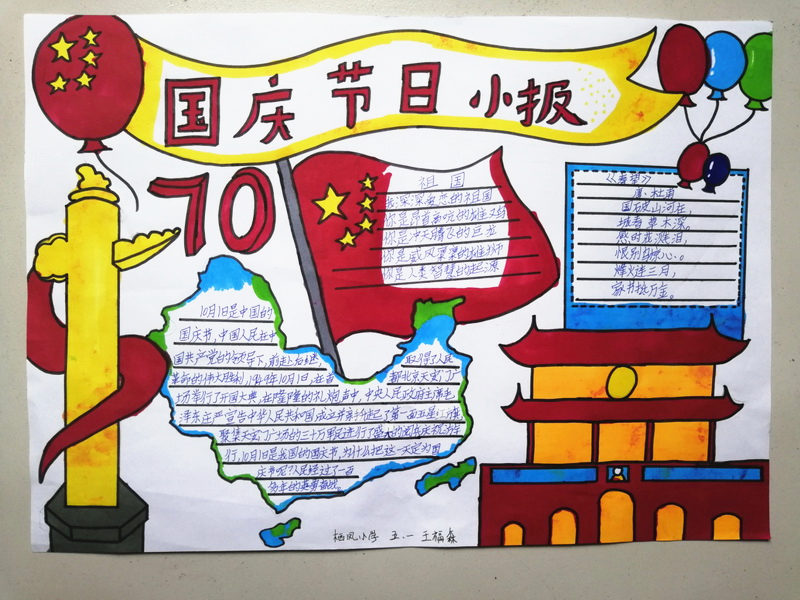 国庆节日小报
70
祖国
我深深眷恋的祖国
你是昂首高吭的雄鸡
你是冲天腾飞的巨龙
你是威风凛凛的雄狮
你是人类智慧的起源
《春望》
唐·杜甫
国破山河在，
城春草木深。
感时花溅泪，
恨别鸟惊心。
烽火连三月，
家书抵万金。
10月1日是中国的
国庆节，中国人民在中
国共产党的领导下，前赴后继，取得了人民
革命的伟大胜利，1949年10月1日，在首都北京天安门广
场举行了开国大典，在隆隆的礼炮声中，中央人民政府主席毛
泽东庄严宣告中华人民共和国成立并亲手升起了第一面五星红旗
聚集天安门广场的三十万军民进行了盛大的阅兵庆祝游
行，10月1日是我国的国庆节，为什么把这一天定为国
庆节呢？人民经过了一百
多年的英勇奋战。
栖凤小学 五.一 王福森